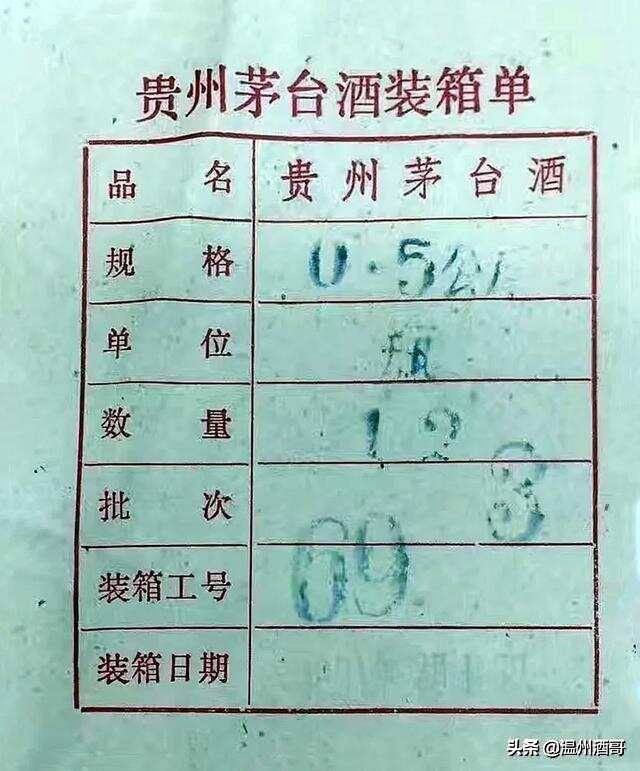 贵州茅台酒装箱单
品 名 贵州茅台酒
规 格 0.5
单 位 瓶
数 量 12
批 次 3
装箱工号 69
装箱日期
头条 @温州酒哥